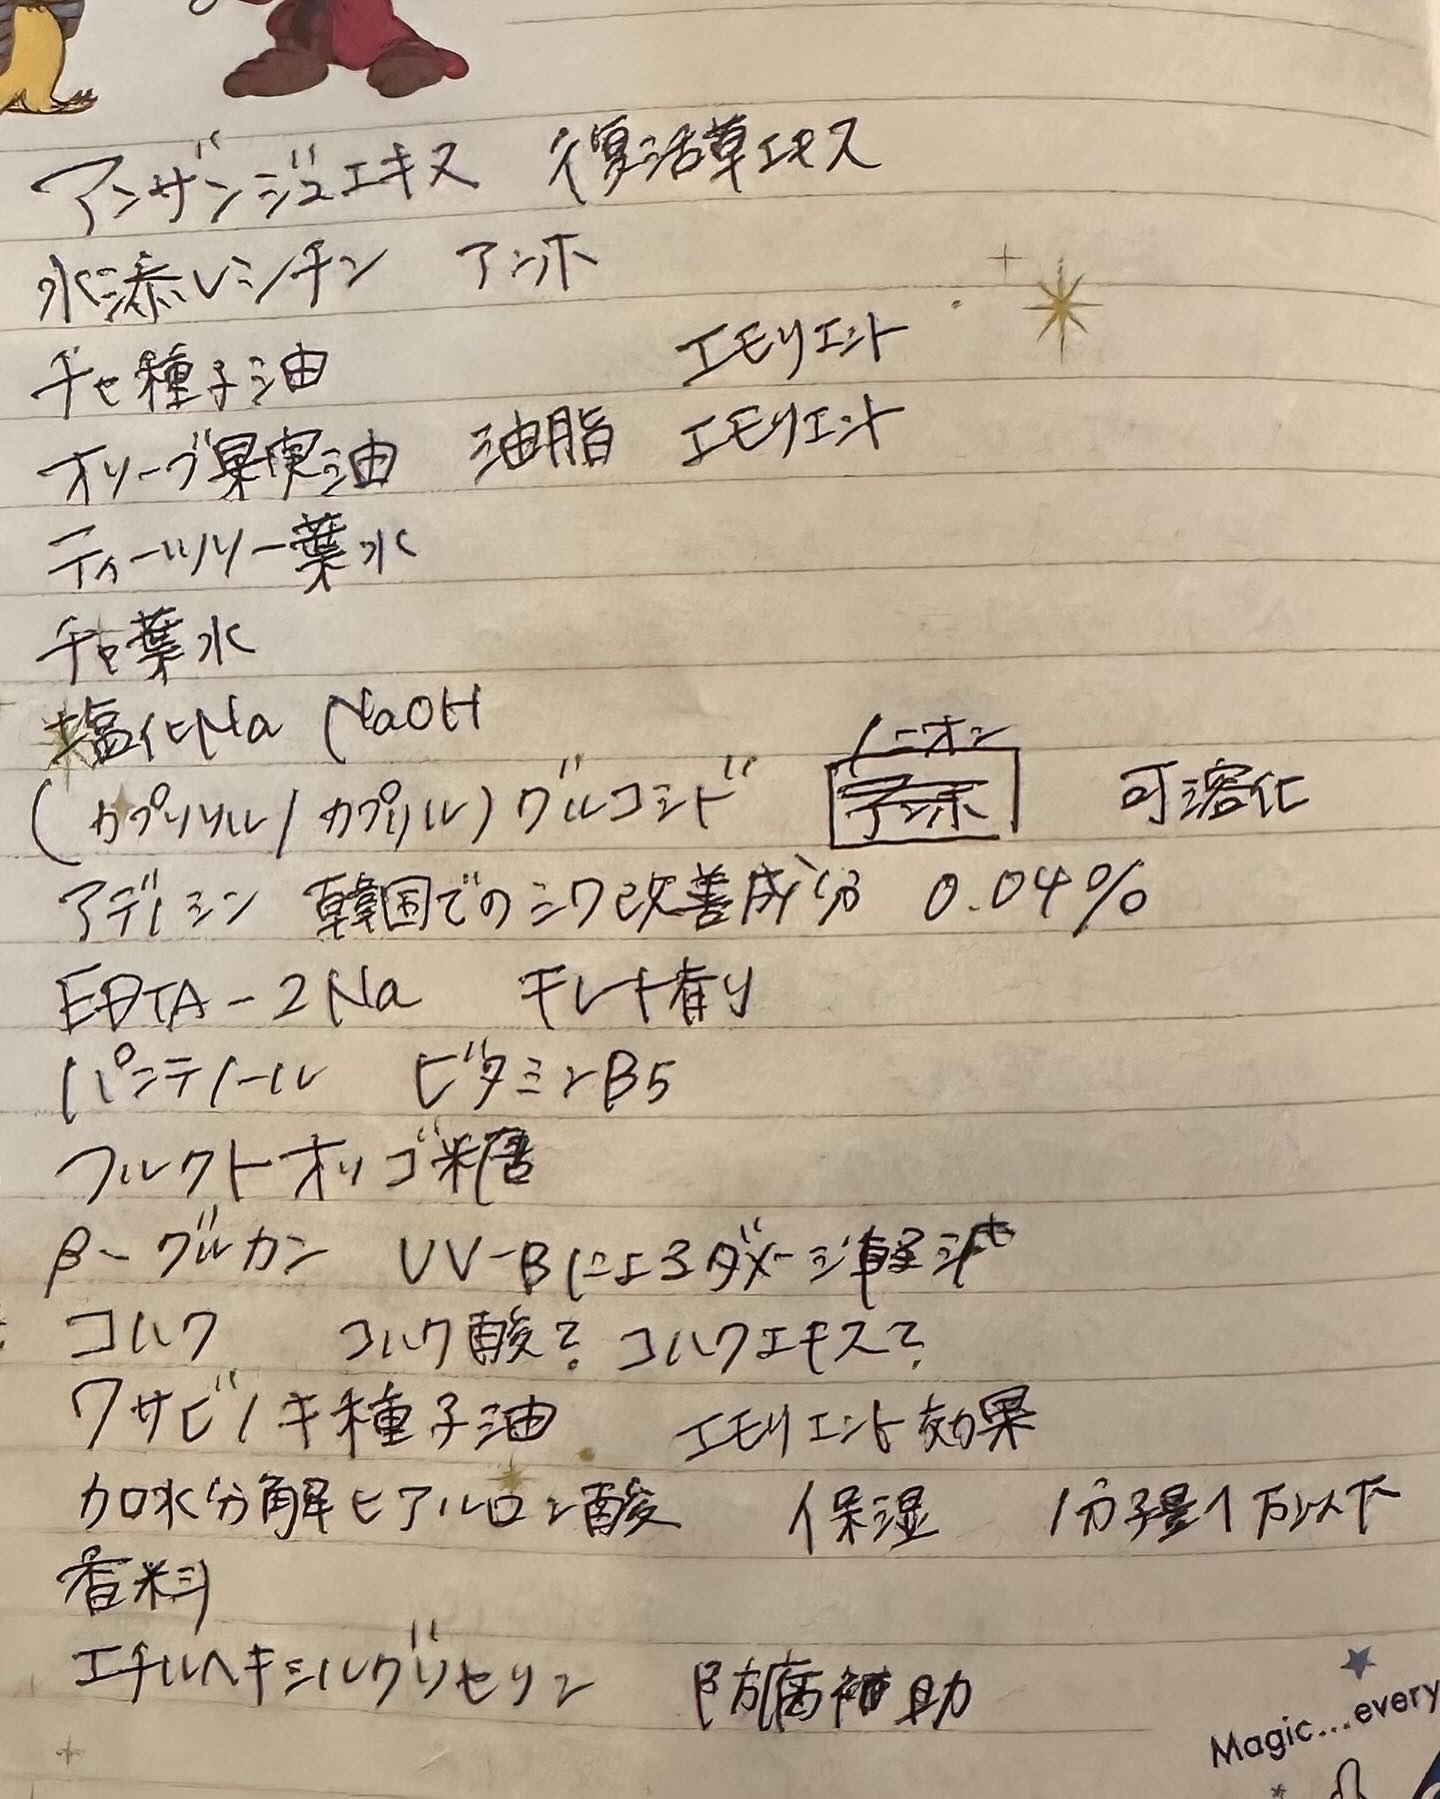 アンザンジュエキス 復活草エキス
水添レシチン アンホ
チャ種子油 エモリエント
オリーブ果実油 油脂 エモリエント
ティーツリー葉水
チャ葉水
塩化Na NaOH
ノニオン
(カプリリル/カプリル)グルコシド アンホ 可溶化
アデノシン 韓国でのシワ改善成分 0.04%
EDTA-2Na キレート有り
パンテノール ビタミンB5
フルクトオリゴ糖
β-グルカン UV-Bによるダメージ軽減
コルク コルク酸? コルクエキス?
ワサビノキ種子油 エモリエント効果
加水分解ヒアルロン酸 保湿 分子量1万以下
香料
エチルヘキシルグリセリン 防腐補助
Magic...every